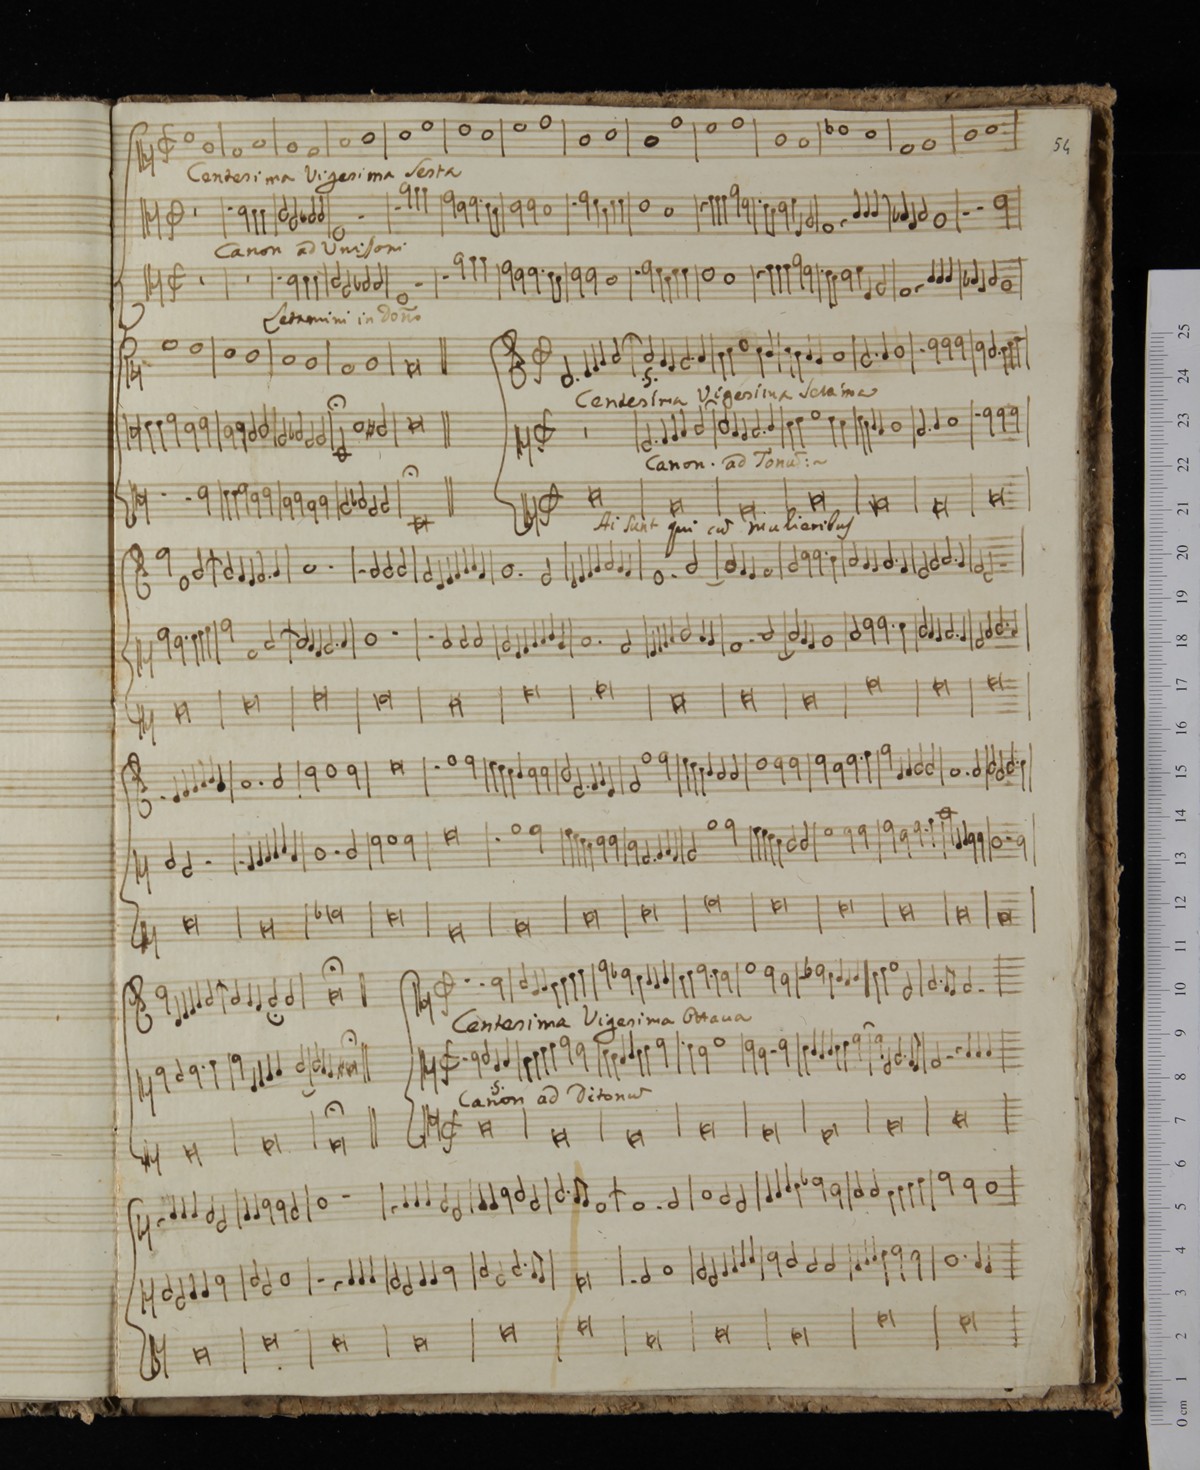 54
Centesima Vigesima Sesta
Canon ad Unissoni
Letamini in Dono
Centesima Vigesima Setima
Canon. ad Tonu:~
sunt qui cu mulieribus
Centesima Vigesima Ottaua
Canon ad Ditonu
25
24
23
22
21
20
19
18
17
16
15
14
13
12
11
10
9
8
7
6
5
4
3
2
1
0 cm